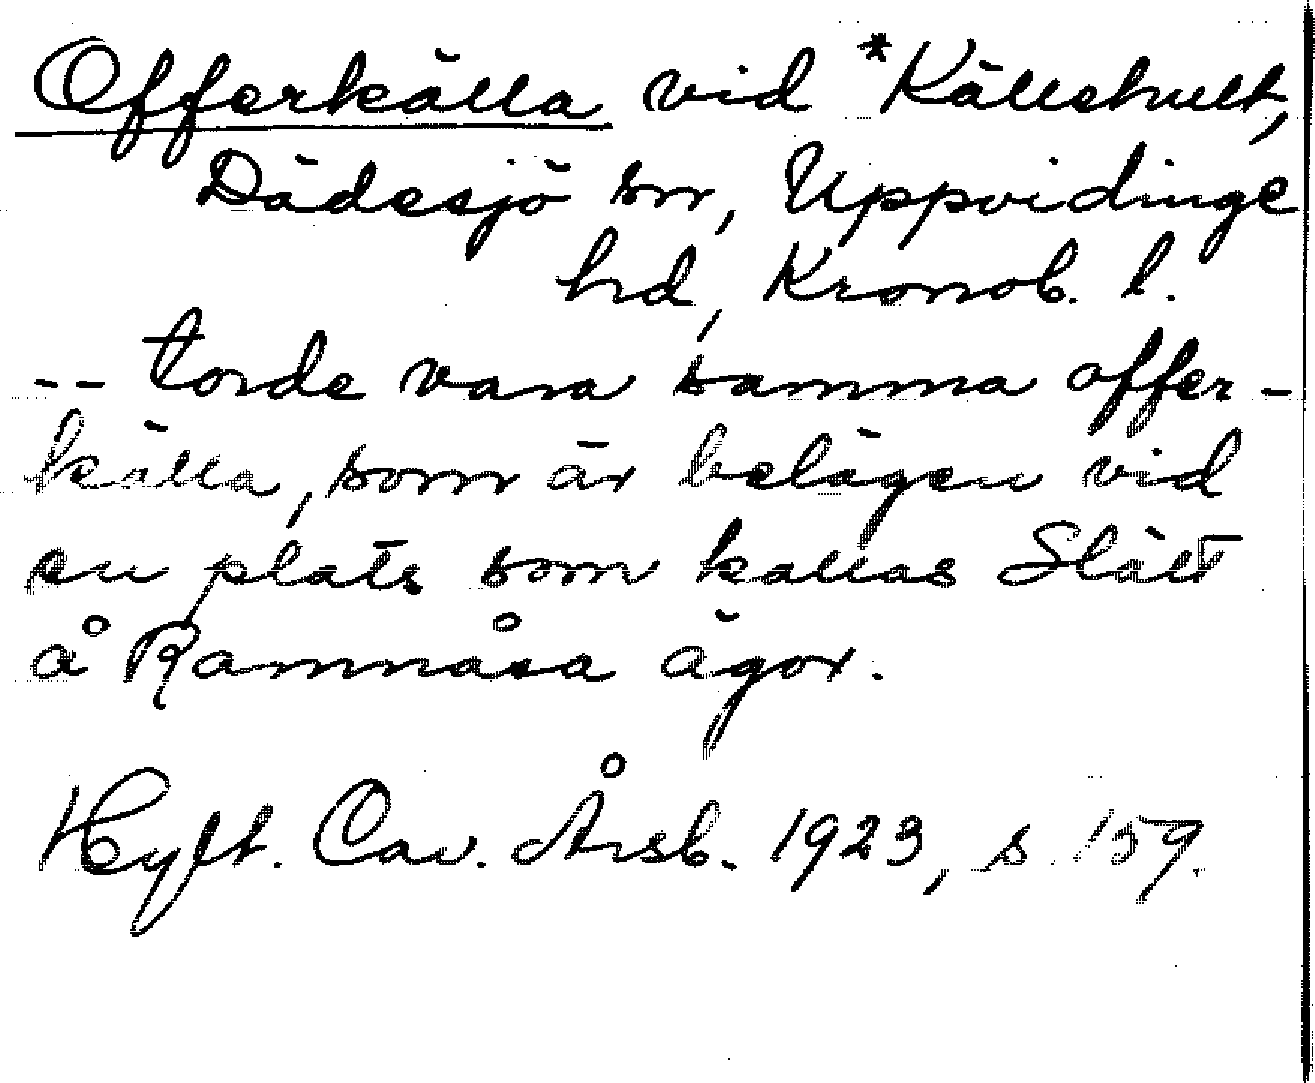 Offerkälla vid *Källehult,
Dädesjö sn, Uppvidinge
hd, Kronob. l.
-- torde vara samma offer-
källa, som är belägen vid
en plats som kallas Slätt
å Ramnåsa ägor.
Hylt. Cav. Årsb. 1923, s. 159.